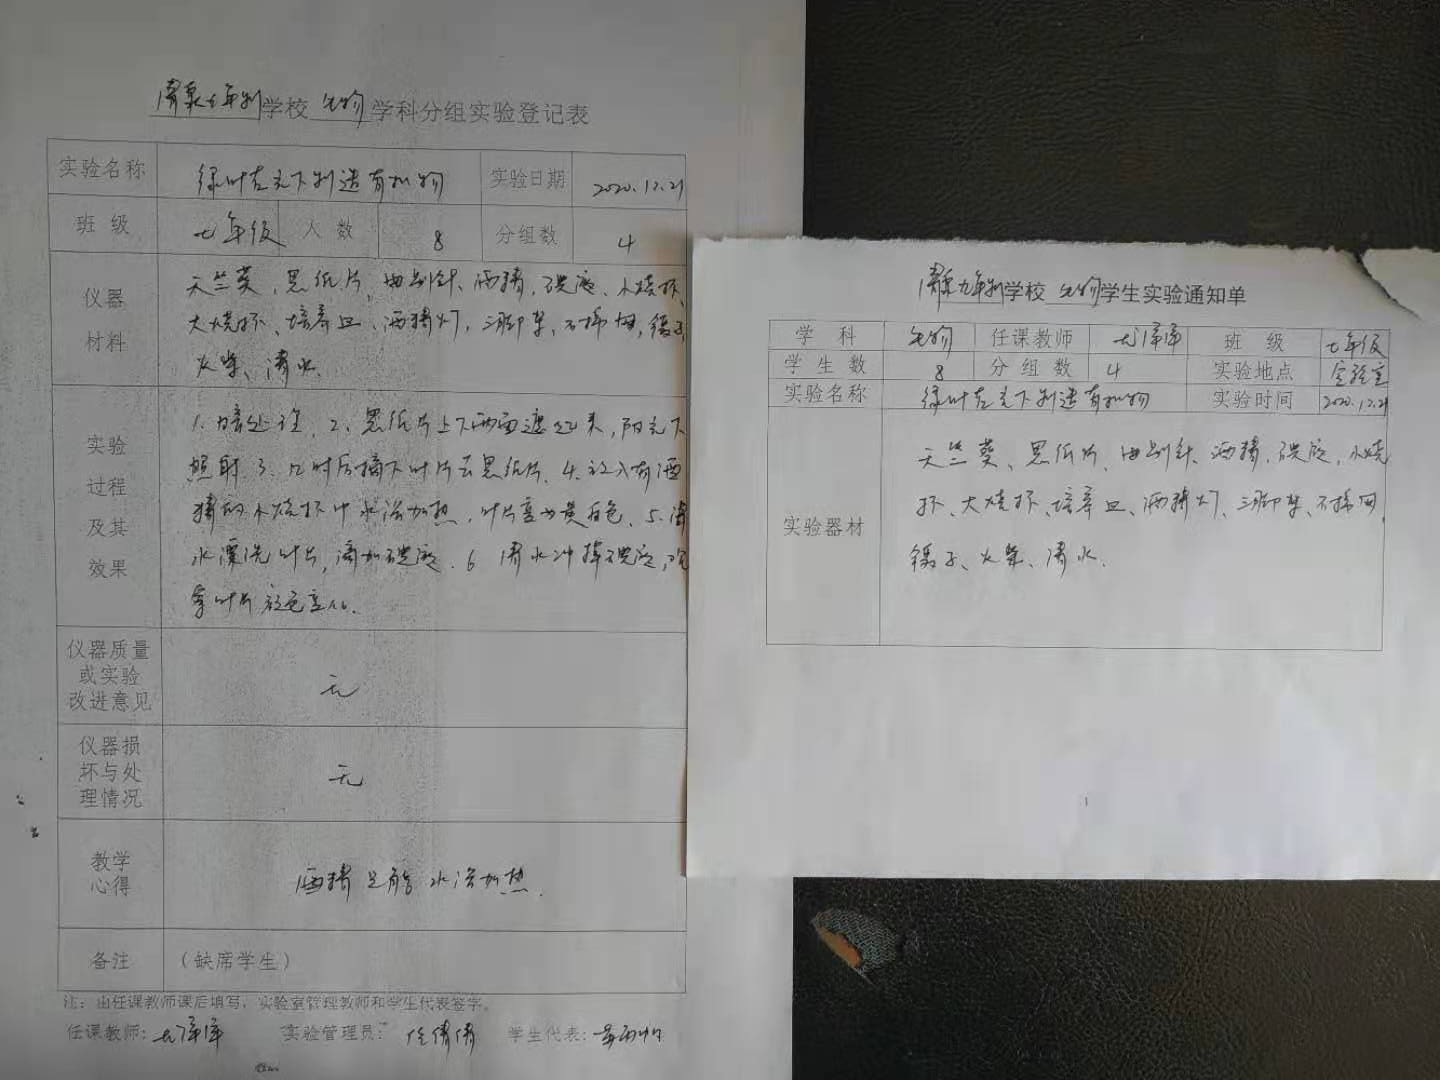 清泉九年制学校 生物 学科分组实验登记表
实验名称 绿叶在光下制造有机物 实验日期 2020.12.21
班 级 七年级 人 数 8 分组数 4
仪器材料
天竺葵、黑纸片、曲别针、酒精、碘液、小烧杯、
大烧杯、培养皿、酒精灯、三脚架、石棉网、镊子、
火柴、清水.
实验过程及其效果
1.暗处理. 2、黑纸片上下两面遮起来,阳光下
照射. 3.几时后摘下叶片去黑纸片. 4.放入有酒
精的小烧杯中水浴加热,叶片变为黄白色. 5.清
水漂洗叶片,滴加碘液. 6 清水冲掉碘液,观
察叶片颜色变化.
仪器质量或实验改进意见 无
仪器损坏与处理情况 无
教学心得 酒精只能水浴加热.
备注 (缺席学生)
注：由任课教师课后填写，实验室管理教师和学生代表签字。
任课教师: 实验管理员: 任倩倩 学生代表:
清泉九年制学校 生物学生实验通知单
学 科 生物 任课教师 班 级 七年级
学 生 数 8 分 组 数 4 实验地点 实验室
实验名称 绿叶在光下制造有机物 实验时间 2020.12.21
实验器材
天竺葵、黑纸片、曲别针、酒精、碘液、小烧
杯、大烧杯、培养皿、酒精灯、三脚架、石棉网、
镊子、火柴、清水.